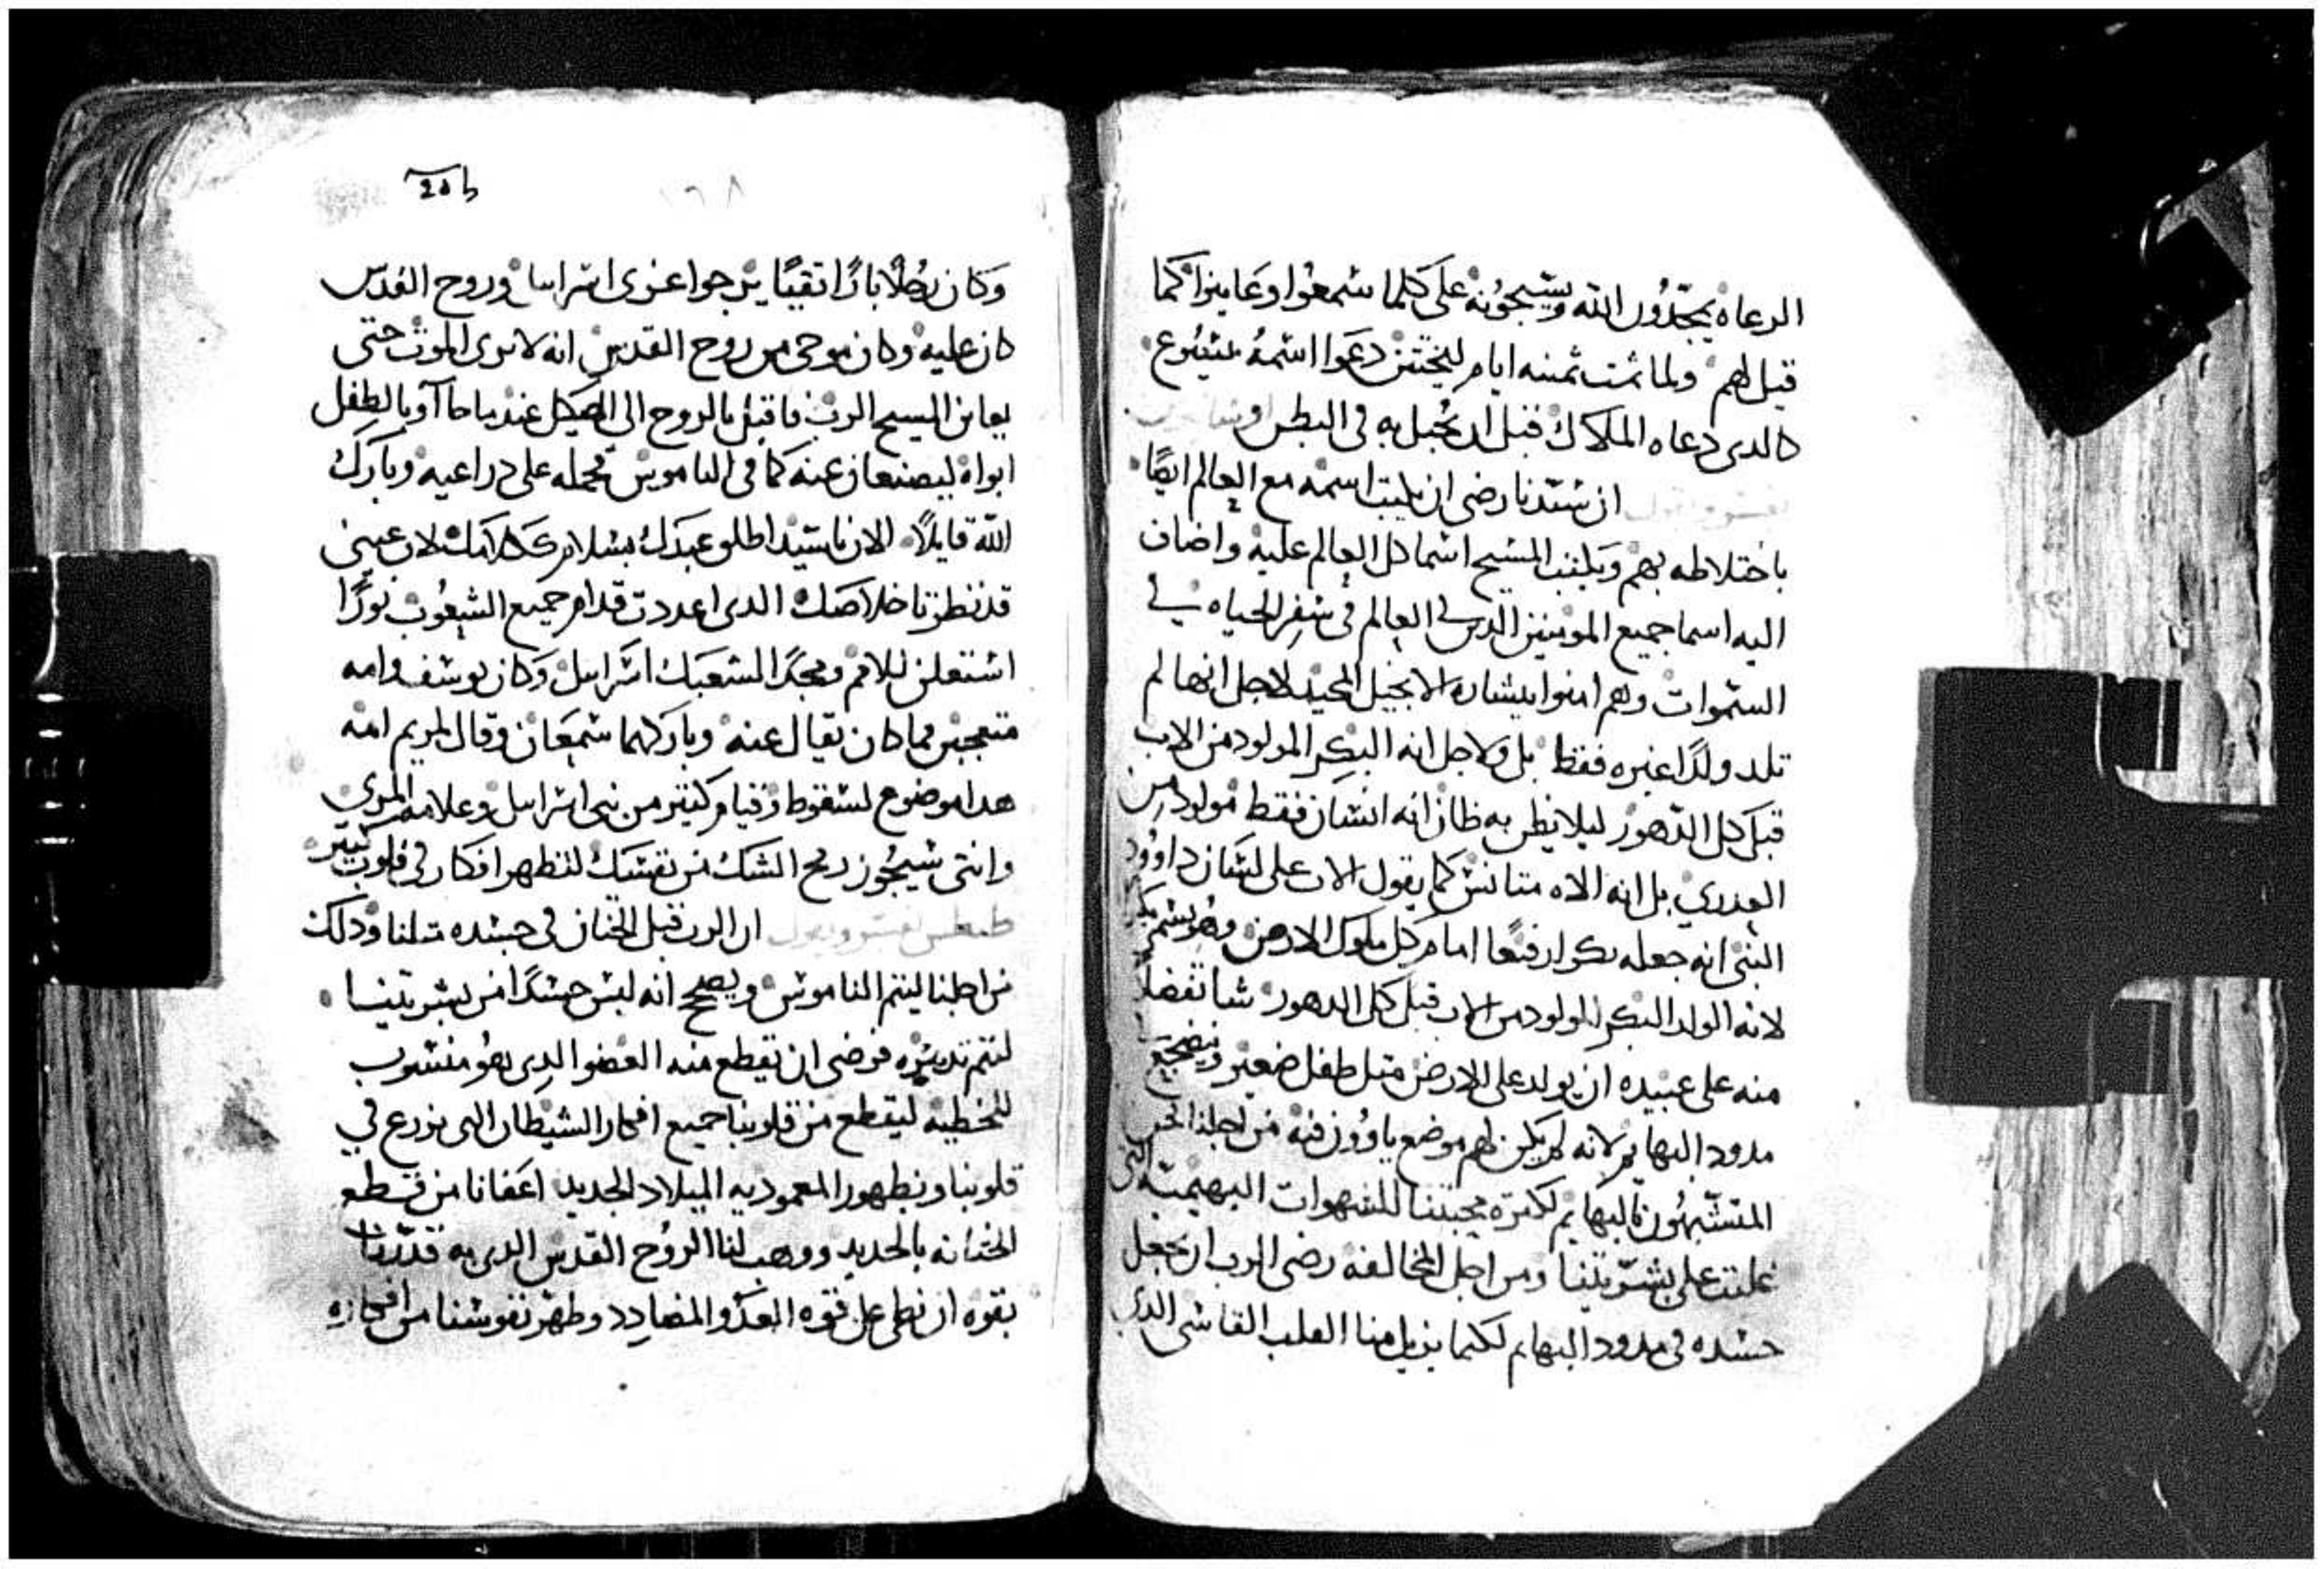 الرعاه يمجدون الله ويسبحونه على كلما سمعوا وعاينوا كما
قيل لهم ولما تمت ثمنيه ايام ليختتن دعوا اسمه يسوع
كالدى دعاه الملاك قبل ان يحبل به فى البطن
ان سيدنا رضى ان يكتب اسمه مع العالم ايضًا
باختلاطه بهم ويكتب المسيح اسما كل العالم عليه واضاف
اليه اسما جميع المومنين الدين في العالم فى سفر الحياه في
السموات وهم امنوا ببشاره الانجيل المحيد لاجل انها لم
تلد ولدًا غيره فقط بل ولاجل انه البكر المولود من الاب
قبل كل الدهور ليلا يظن به ظان انه انسان فقط مولود من
العدري بل انه الاه متانس كما يقول الاب على لسان داوود
النبى انه جعله بكرا رفيعًا امام كل ملوك الارض وهو يسمى بكر
لانه الولد البكر المولود من الاب قبل كل الدهور شا تفضلاً
منه على عبيده ان يولد على الارض متل طفل صغير ويضجع
مدود البهايم لانه لم يكن لهم موضع ياوون فيه من اجلنا نحن
المتشبهون بالبهايم لكتره محبتنا للشهوات البهيميه التى
غلبت على بشريتنا ومن اجل المخالفه رضى الرب ان يجعل
جسده فى مدود البهايم لكيما يزيل منا القلب القاسى الدى
20b
١٦٨
وكان رجلاً بارًا تقيًا يترجوا عزوى اسراييل وروح القدس
كان عليه وكان يوحى من روح القدس انه لا يرى الموت حتى
يعاين المسيح الرب فاقبل بالروح الى الهيكل عندما جاآوا بالطفل
ابواه ليصنعان عنه كما فى الناموس فحمله على دراعيه وبارك
الله قايلاً الان ياسيد اطلو عبدك بسلام ككلامك لان عينى
قد نظرتا خلاصك الدى اعددت قدام جميع الشعوب نورًا
استعلن للامم ومجدًا لشعبك اسراييل وكان يوسف وامه
متعجبين مما كان يقال عنه وباركهما سمعان وقال لمريم امه
هدا موضوع لسقوط وقيام كتير من بنى اسراييل وعلامه المري
وانتى سيجوز رمح الشك من نفسك لتظهر افكار فى قلوب كتير
ان الرب قبل الختان فى جسده متلنا ودلك
من اجلنا ليتم الناموس ويصحح انه لبس جسدًا من بشريتنا
لتتم تدبيره فرضى ان تقطع منه العضو الدى هو منسوب
للخطيه ليقطع من قلوبنا جميع افكار الشيطان التى يزرع في
قلوبنا وبطهور المعموديه الميلاد الجديد اعفانا من قطع
الختانه بالحديد ووهب لنا الروح القدس الدى به قدرنا
بقوه ان نطى على قوه العدو المضادد وطهر نفوسنا من افكاره